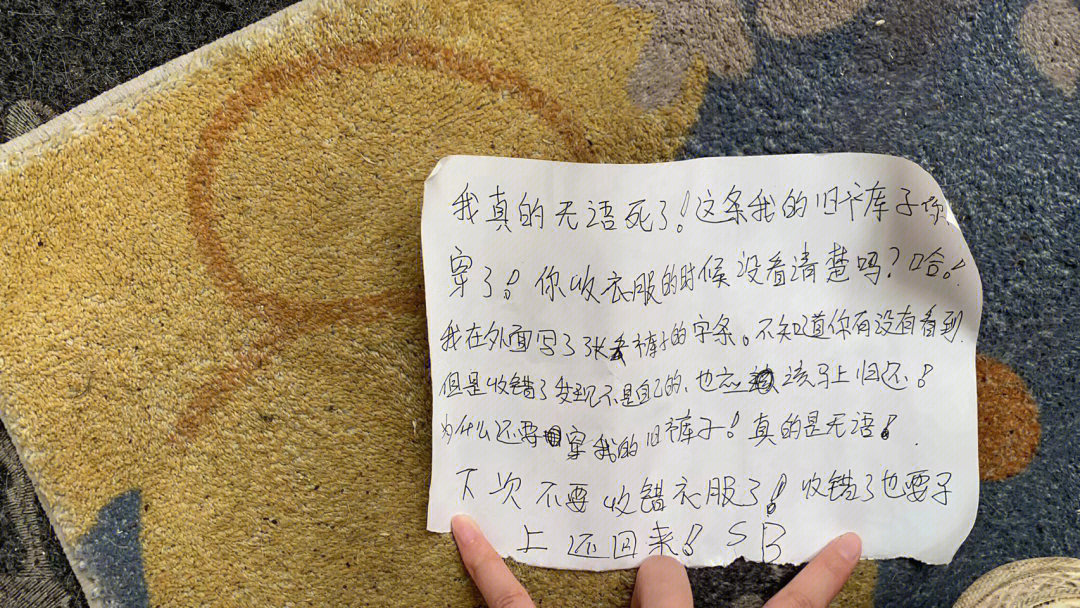 我真的无语死了！这条我的旧裤子你
穿了！你收衣服的时候没看清楚吗？哈！
我在外面写了张裤子的字条。不知道你有没有看到
但是收错了发现不是自己的、也应该马上归还！
为什么还要穿我的旧裤子！真的是无语！
下次不要收错衣服了！收错了也要
上还回来！SB